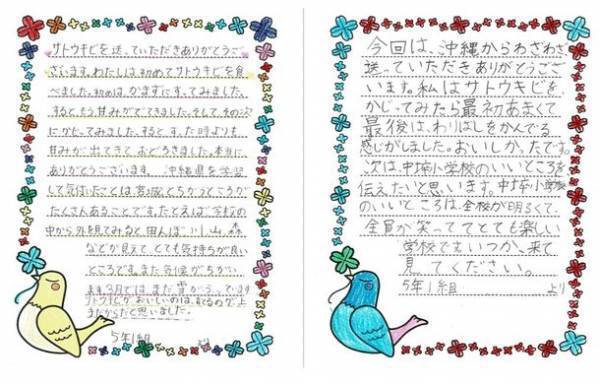 サトウキビを送っていただきありがとうご
ざいます。わたしは初めてサトウキビを食
べました。初めは、かまずにすってみました。
するともう甘みがでてきました。そして、その次
にかじってみました。すると、すった時よりも
甘みが出てきておどろきました。本当に
ありがとうございます。沖縄県を学習
して気付いたことは、宮城とちがうところが
たくさんあることです。たとえば、学校の
中から外を見てみると田んぼ、川、山、森
などが見えて、とても気持ちが良い
ところです。また気候がちがい
ます。3月とはまだ雪がふっています
サトウキビがおいしいのは、
だからだと思いました。
5年1組 より
今回は、沖縄からわざわざ
送っていただきありがとうござ
います。私はサトウキビを
かじってみたら最初あまくて
最後は、わりばしをかんでる
感じがしました。おいしかったです。
次は、中塚小学校のいいところを
伝えたいと思います。中塚小学校
のいいところは、全校が明るくて、
全員が笑っててとても楽しい
学校です。いつか、来て
見てください。
5年1組 より